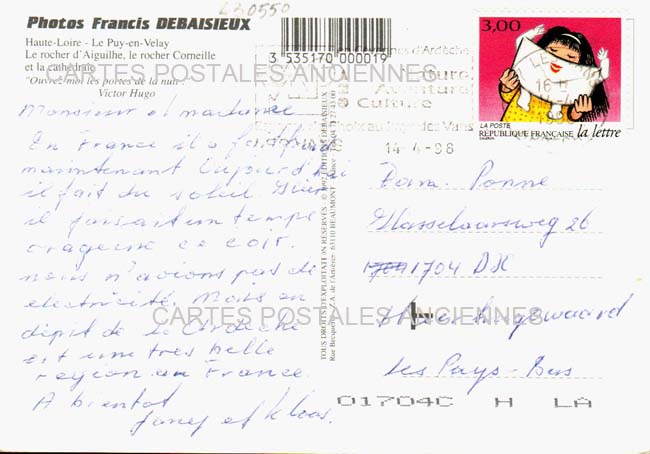 230550
Photos Francis DEBAISIEUX
Haute-Loire - Le Puy-en-Velay
Le rocher d'Aiguilhe, le rocher Corneille
et la cathédrale
"Ouvrez-moi les portes de la nuit"
Victor Hugo
3 535170 000019
3,00
LA POSTE
RÉPUBLIQUE FRANÇAISE la lettre
en Cévennes d'Ardèche
Nature
Aventure
Culture
des Vans
14-4-98
CARTES POSTALES ANCIENNES
Monsieur et madame
En France il a
maintenant Aujourd'hui
il fait du soleil Hier
il faisait un temps
orageux ce soir.
nous n'avions pas de
electricité. Mais en
dépit de le
est une tres belle
region en France.
A bientot
et Klaas.
TOUS DROITS D'EXPLOITATION RESERVES - © EDITIONS DEBAISIEUX
63110 BEAUMONT
Fam. Ponne
Hasselaarsweg 26
1704 DX
Heerhugowaard
Les Pays-Bas
CARTES POSTALES ANCIENNES
01704C H LA